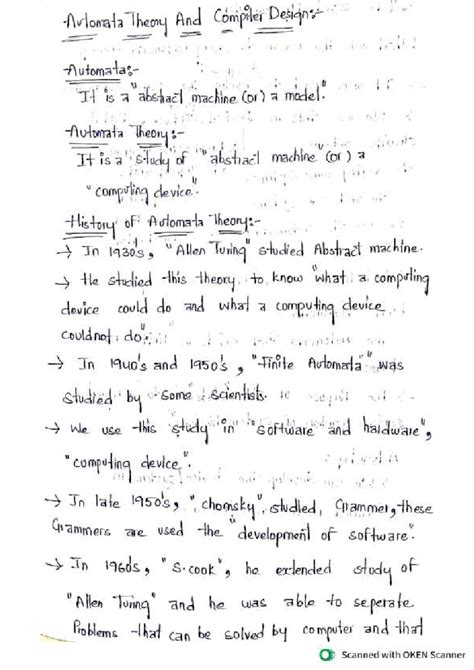 Automata Theory And Compiler Design:-
Automata:-
It is a "abstract machine (or) a model."
Automata Theory:-
It is a "study" of "abstract machine" (or) a
"computing device".
History of Automata Theory:-
→ In 1930's, "Allen Turing" studied Abstract machine.
→ He studied this theory to know "what a computing
device could do and what a computing device
couldnot do"
→ In 1940's and 1950's, "Finite Automata" was
studied by some scientists.
→ We use this "study" in "software and hardware",
"computing device".
→ In late 1950's, "chomsky" studied, Grammer, these
Grammers are used the "development of software".
→ In 1960's, "S.cook", he extended study of
"Allen Turing" and he was able to seperate
Problems that can be solved by computer and that
Scanned with OKEN Scanner